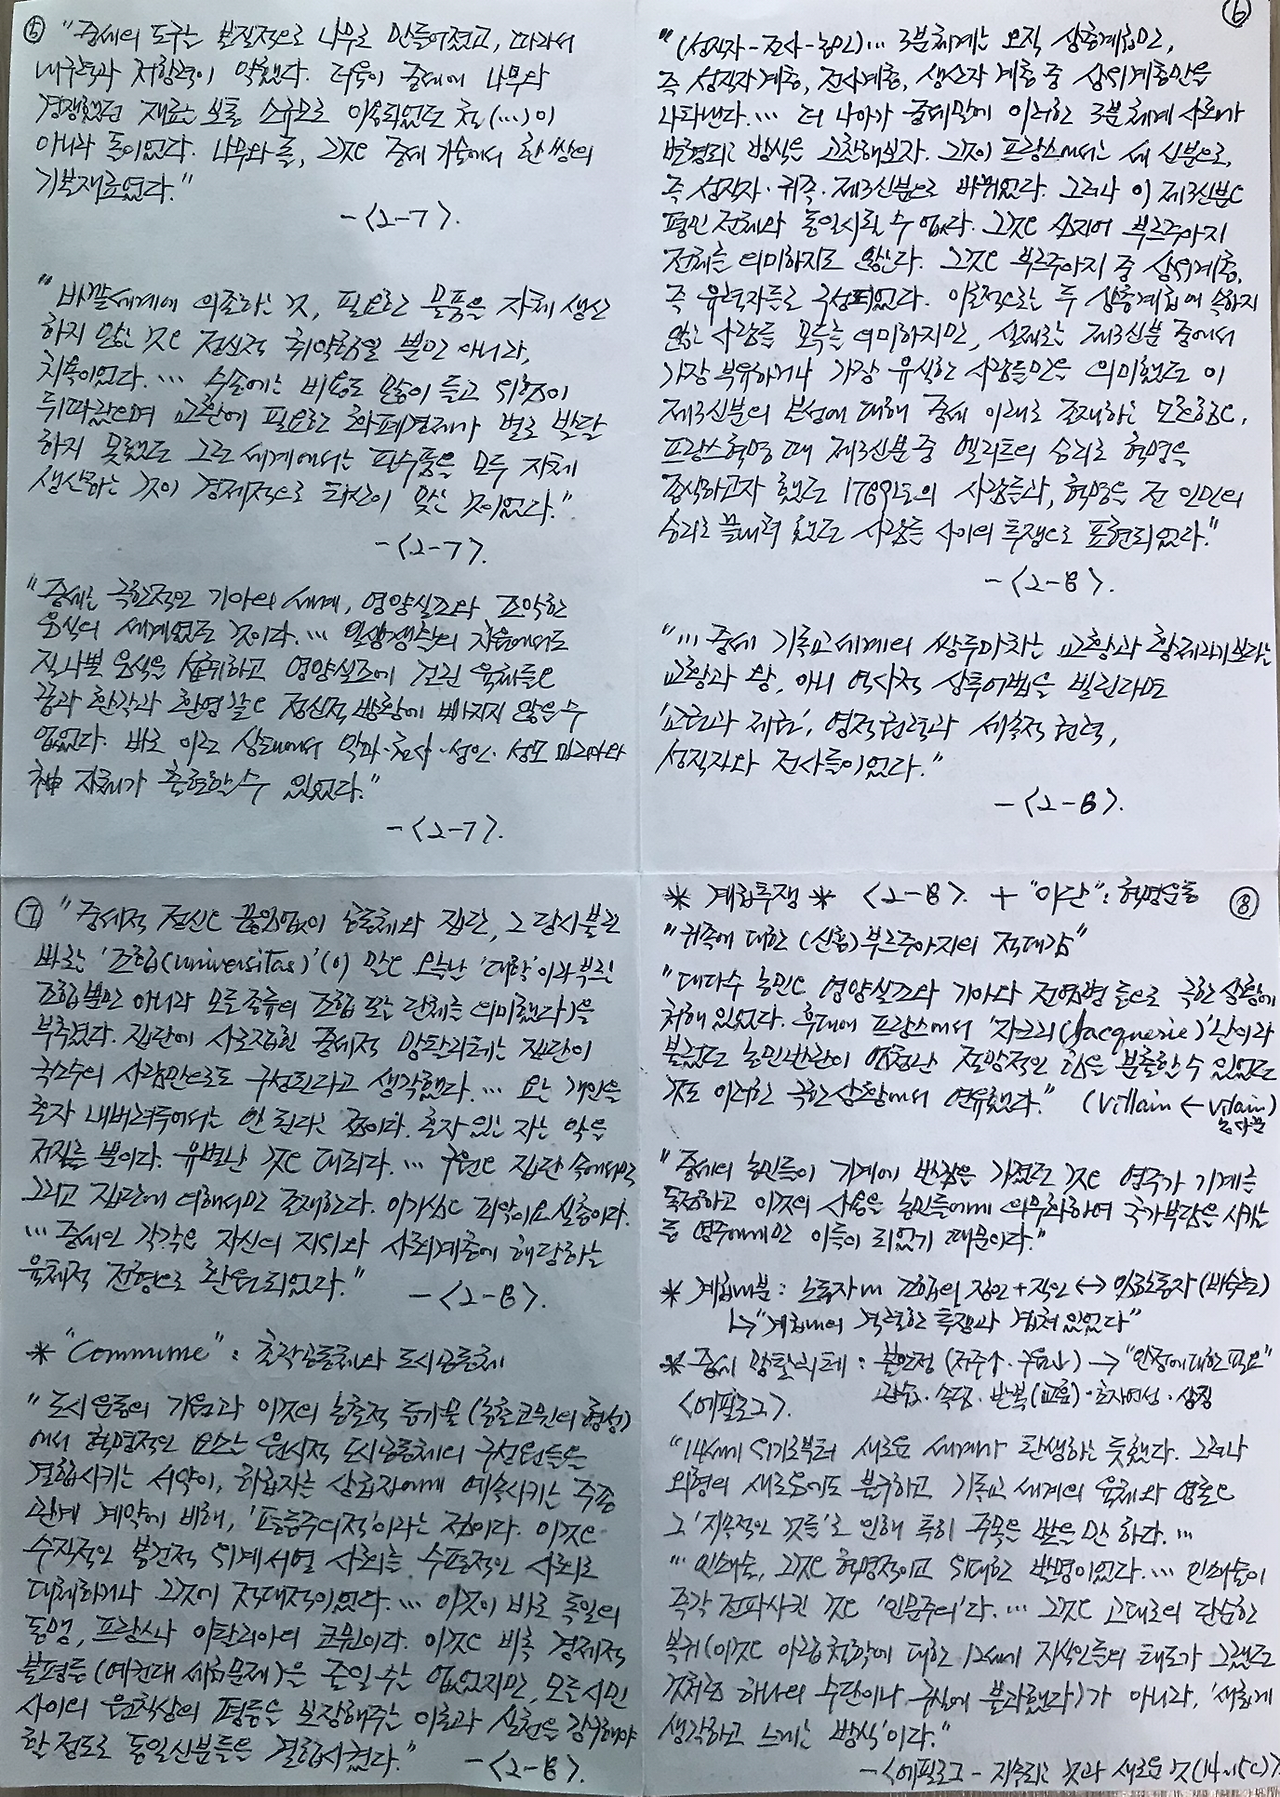 ⑤ "중세의 도구는 본질적으로 나무로 만들어졌고, 따라서
내구력과 저항력이 약했다. 더욱이 중세에 나무와
경쟁했던 재료는 보통 소규모로 이용되었던 철(…)이
아니라 돌이었다. 나무와 돌, 그것은 중세 기술에서 한 쌍의
기본재료였다."
-<2-7>.
"바깥세계에 의존하는 것, 필요한 물품을 자체 생산
하지 않는 것은 정신적 취약함일 뿐만 아니라,
치욕이었다. … 수송에는 비용도 많이 들고 위험이
뒤따랐으며 교환에 필요한 화폐경제가 별로 발달
하지 못했던 그런 세계에서는 필수품을 모두 자체
생산하는 것이 경제적으로 타산이 맞는 것이었다."
-<2-7>.
"중세는 극한적인 기아의 세계, 영양실조와 조악한
음식의 세계였던 것이다. … 일상생활의 차원에서도
질 나쁜 음식을 섭취하고 영양실조에 걸린 육체들은
꿈과 환각과 환영같은 정신적 방황에 빠지지 않을 수
없었다. 바로 이런 상태에서 악마·천사·성인·성모 마리아와
神 자체가 출현할 수 있었다."
-<2-7>.
⑥
"(성직자-전사-농민)… 3분체계는 오직 상층계급만,
즉 성직자계층, 전사계층, 생산자 계층 중 상위계층만을
나타낸다. … 더 나아가 중세말에 이러한 3분체계 사회가
변형되는 방식을 고찰해보자. 그것이 프랑스에서는 세 신분으로,
즉 성직자·귀족·제3신분으로 바뀌었다. 그러나 이 제3신분은
평민 전체와 동일시될 수 없다. 그것은 심지어 부르주아지
전체를 의미하지도 않는다. 그것은 부르주아지 중 상위계층,
즉 유력자들로 구성되었다. 이론적으로는 두 상층계급에 속하지
않는 사람들 모두를 의미하지만, 실제로는 제3신분 중에서
가장 부유하거나 가장 유식한 사람들만을 의미했던 이
제3신분의 본성에 대해 중세 이래로 존재하는 모호함은,
프랑스혁명 때 제3신분 중 엘리트의 승리로 혁명을
종식하고자 했던 1789년의 사람들과, 혁명을 전 인민의
승리로 끝내려 했던 사람들 사이의 투쟁으로 표현되었다."
-<2-8>.
"… 중세 기독교세계의 쌍두마차는 교황과 황제라기보다는
교황과 왕, 아니 역사적 상투어법을 빌린다면
'교권과 제권', 영적권력과 세속적 권력,
성직자와 전사들이었다."
-<2-8>.
⑦ "중세적 정신은 끊임없이 공동체와 집단, 그 당시 불린
바로는 '조합(universitas)'(이 말은 오늘날 '대학'이라 부르는
조합뿐만 아니라 모든 종류의 조합 또는 단체를 의미했다)을
부추겼다. 집단에 사로잡힌 중세적 망탈리테는 집단이
극소수의 사람만으로도 구성된다고 생각했다. … 요는 개인을
혼자 내버려두어서는 안 된다는 점이다. 혼자 있는 자는 악을
저지를 뿐이다. 유별난 것은 대죄다. … 구원은 집단 속에서만
그리고 집단에 의해서만 존재한다. 이기심은 죄악이요 실총이다.
… 중세인 각각은 자신의 지위와 사회계층에 해당하는
육체적 전형으로 환원되었다." -<2-8>.
* "Commune" : 촌락공동체와 도시공동체
"도시운동의 기원과 이것의 농촌적 등가물(농촌코뮌의 형성)
에서 혁명적인 요소는 원시적 도시공동체의 구성원들을
결합시키는 서약이, 하급자를 상급자에게 예속시키는 주종
관계 계약에 비해, '평등주의적'이라는 점이다. 이것은
수직적인 봉건적 위계서열 사회를 수평적인 사회로
대체하거나 그것에 적대적이었다. … 이것이 바로 독일의
동맹, 프랑스나 이탈리아의 코뮌이다. 이것은 비록 경제적
불평등(예컨대 세금문제)을 줄일 수는 없었지만, 모든 시민
사이의 원칙상의 평등을 보장해주는 이론과 실천을 강구해야
할 정도로 동일신분들을 결합시켰다." -<2-8>.
* 계급투쟁 * <2-8>. + "이단": 혁명운동 ⑧
"귀족에 대한 (신흥)부르주아지의 적대감"
"대다수 농민은 영양실조와 기아와 전염병 등으로 극한 상황에
처해 있었다. 후대에 프랑스에서 '자크리(Jacquerie)'난이라
불렸던 농민반란이 엄청난 절망적인 힘을 분출할 수 있었던
것도 이러한 극한상황에서 연유했다." (Villain ← vilain)
농민
"중세의 농민들이 기계에 반감을 가졌던 것은 영주가 기계를
독점하고 이것의 사용을 농민들에게 의무화하여 추가부담을 시키는
등 영주에게만 이득이 되었기 때문이다."
* 계급내분 : 노동자 vs 조합의 장인+직인 ↔ 미숙련노동자(비숙련)
↳ "계급내의 격렬한 투쟁과 겹쳐 있었다"
* 중세 망탈리테 : 불안정 (저주↑·구원↓) → "안정에 대한 필요"
관습·속담·반복(교훈)·초자연성·상징
<에필로그>.
"14세기 위기로부터 새로운 세계가 탄생하는 듯했다. 그러나
외형의 새로움에도 불구하고 기독교 세계의 육체와 영혼은
그 '지속적인 것들'로 인해 특히 주목을 받을 만 하다. …
… 인쇄술, 그것은 혁명적이고 위대한 발명이었다. … 인쇄술이
즉각 전파시킨 것은 '인문주의'다. … 그것은 고대로의 단순한
복귀(이것은 아랍철학에 대한 12세기 지식인들의 태도가 그랬던
것처럼 하나의 수단이나 구실에 불과했다)가 아니라, '새롭게
생각하고 느끼는 방식'이다."
-<에필로그 - 지속되는 것과 새로운 것(14~15c)>